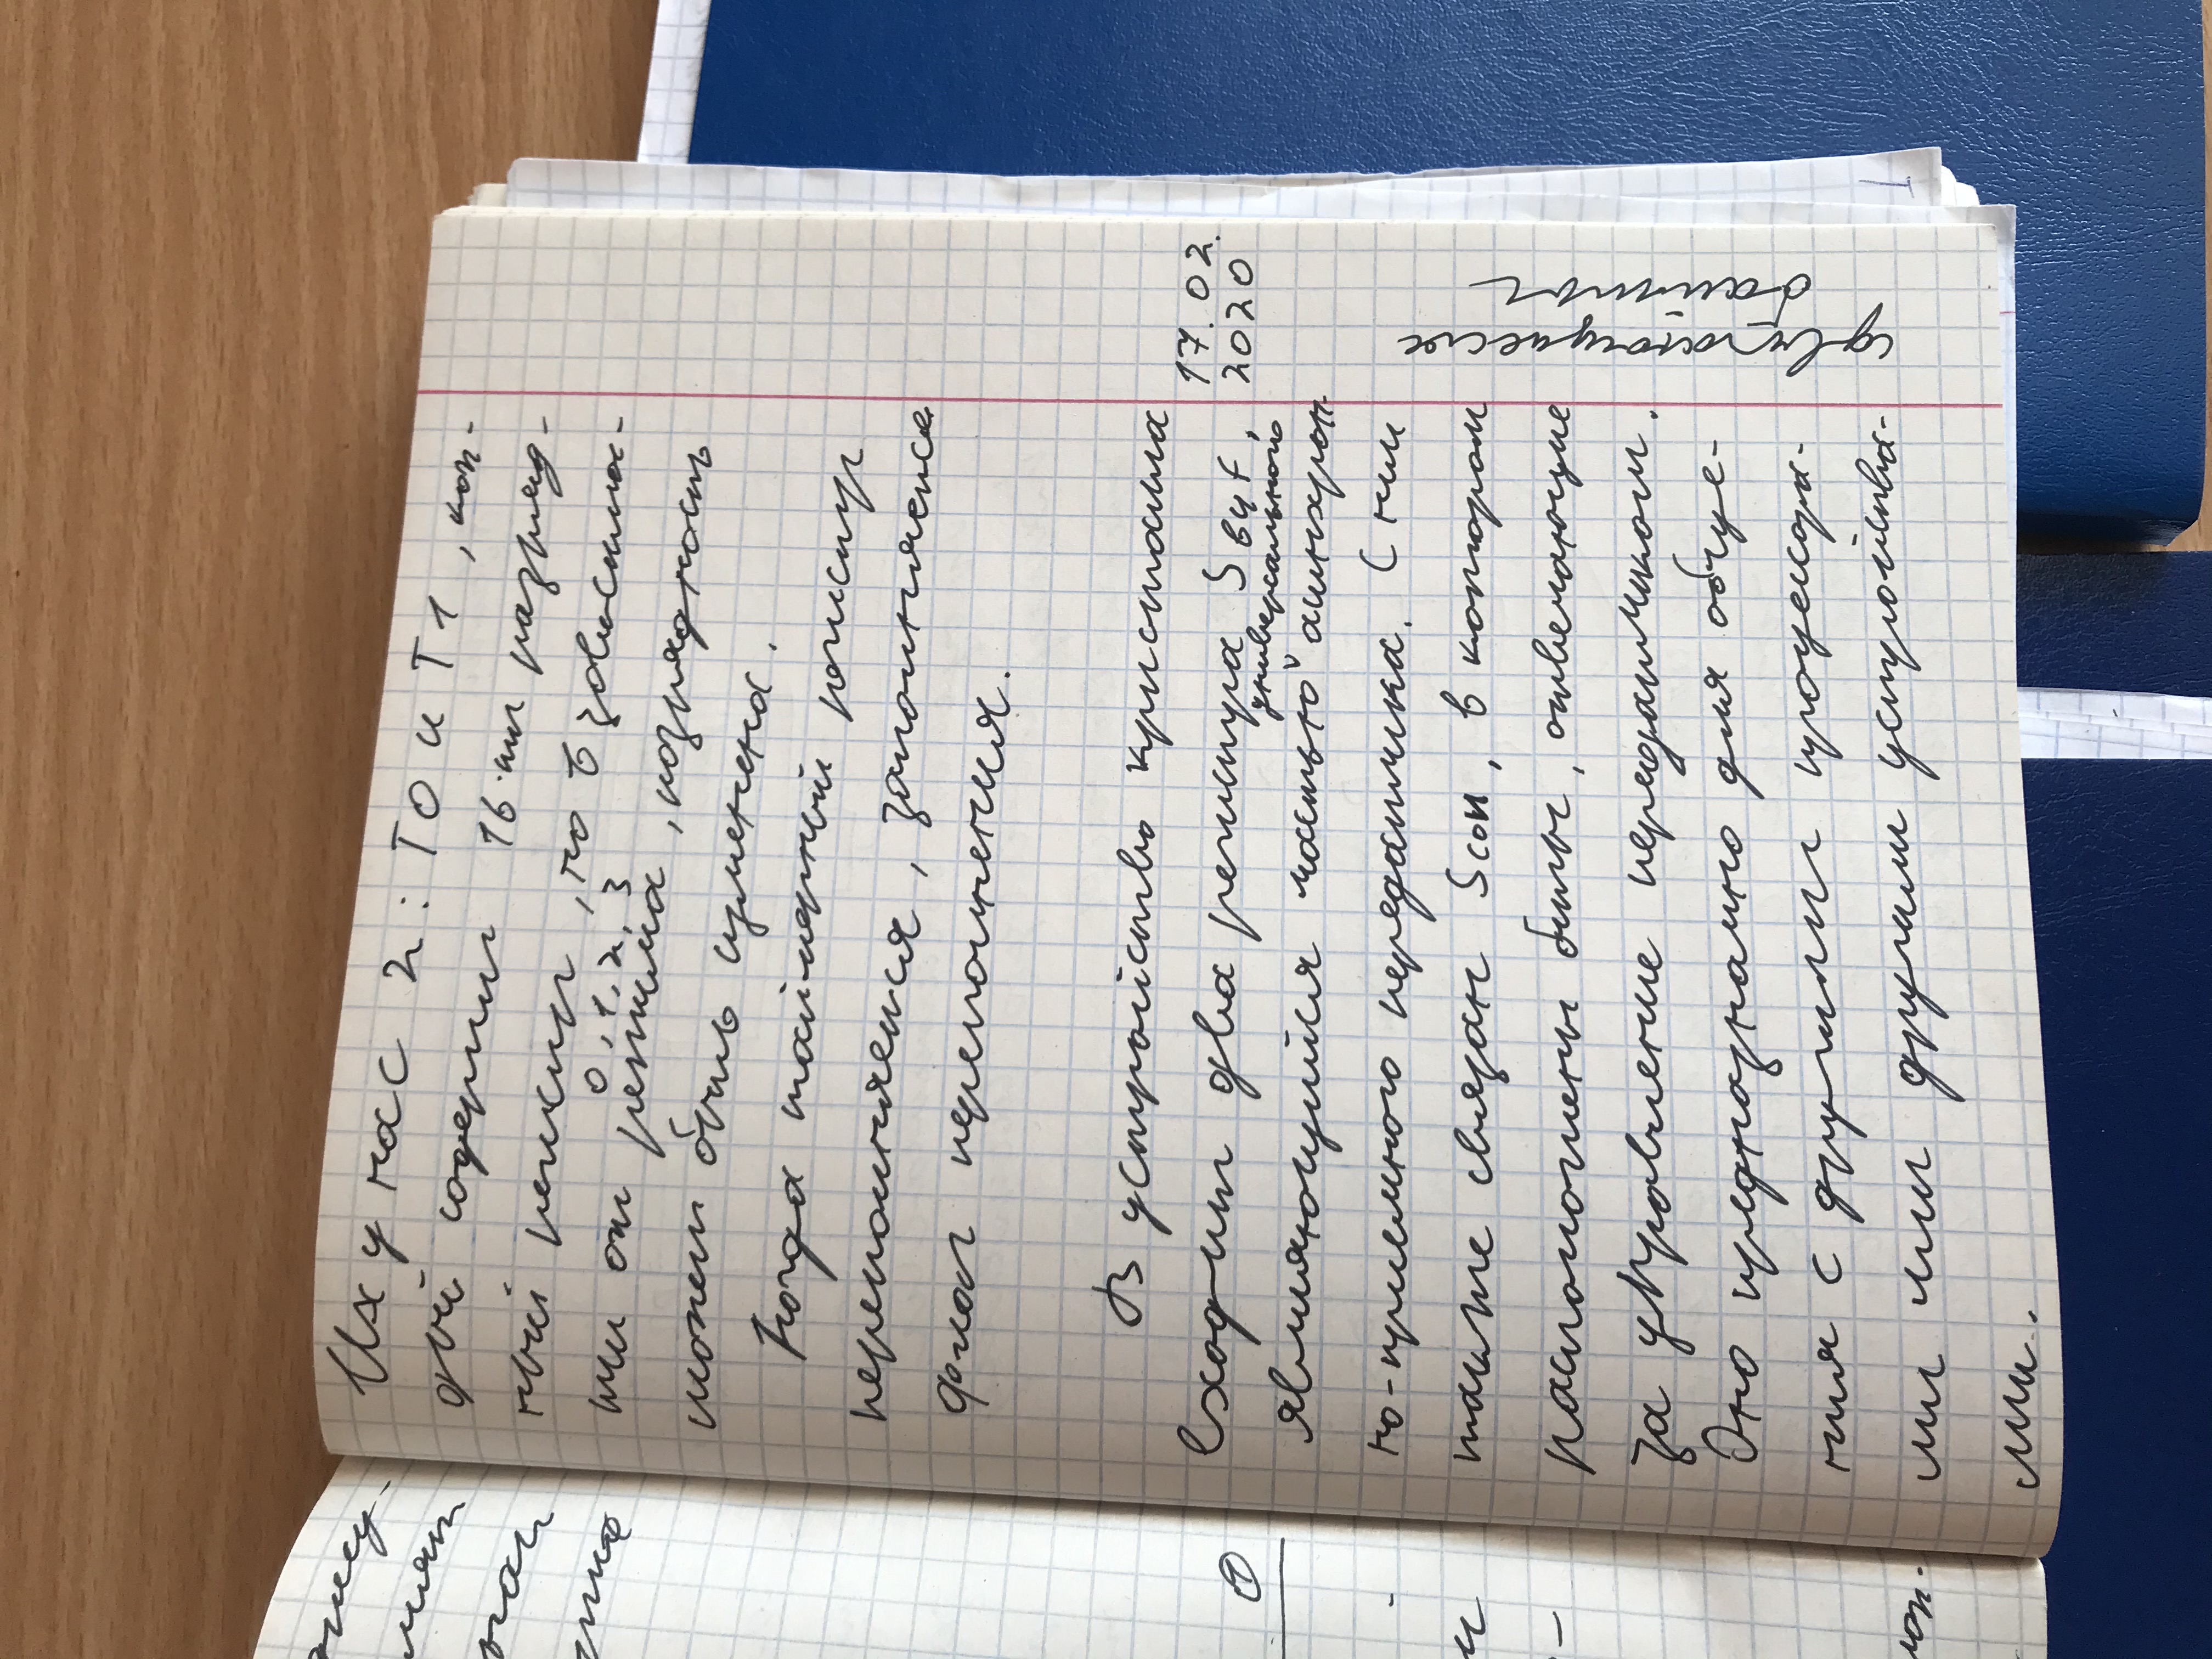 Их у нас 2: Т0 и Т1, каж-
дый содержит 16-ти разряд-
ный режим, но в зависимо-
0, 1, 2, 3
сти от режима, разрядность
может быть изменена.
Когда таймерный регистр
переполняется, заполняется
флаг переполнения.
В устройство кристалла
входит два регистра Sbuf,
17.02.
2020
универсального
являющийся частью асинхрон-
но-приемного передатчика. С ним
также связан Scon, в котором
расположены биты, отвечающие
за управление передатчиком.
Оно предназначено для обще-
ния с другими процессора-
ми или другими устройства-
ми.
сдвигающиеся
байты